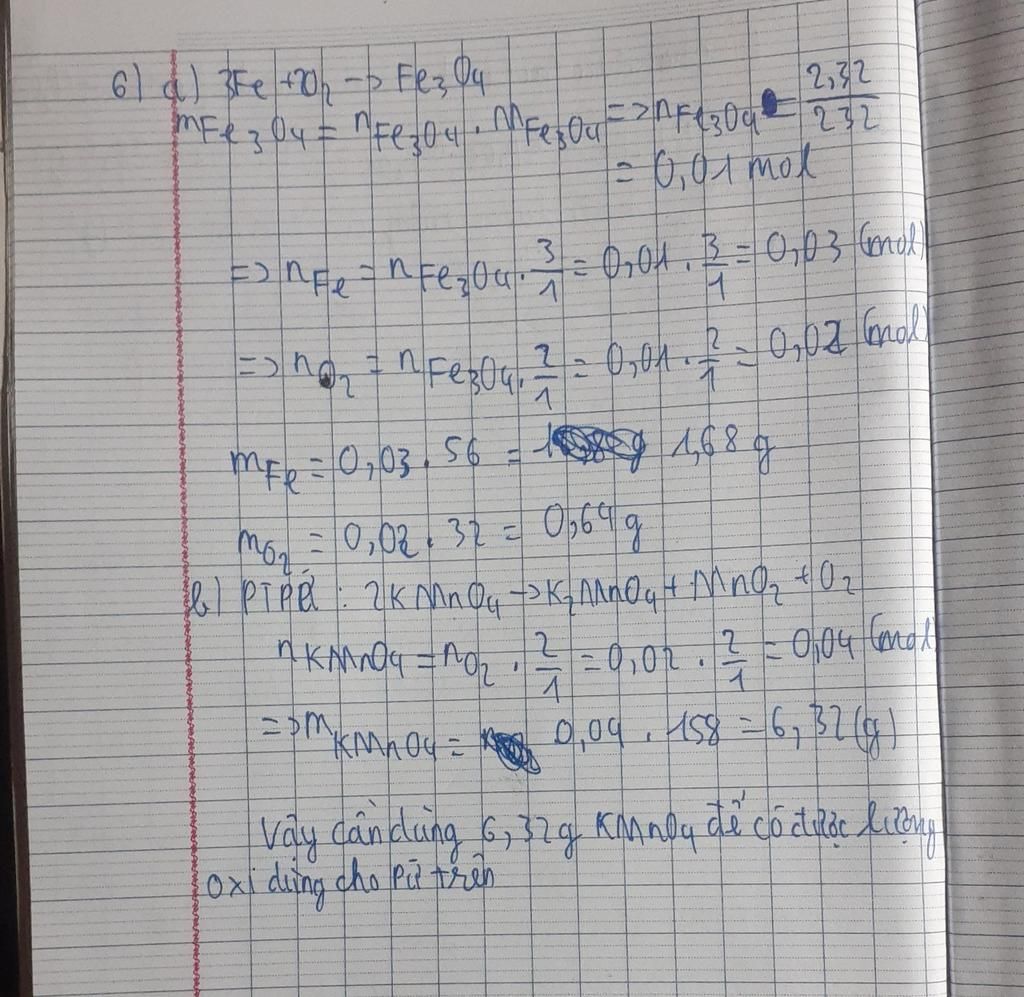 6) a) 3Fe + 2O₂ -> Fe₃O₄
mFe₃O₄ = nFe₃O₄ . MFe₃O₄ => nFe₃O₄ = 2,32/232
= 0,01 mol
=> nFe = nFe₃O₄ . 3/1 = 0,01 . 3/1 = 0,03 (mol)
=> nO₂ = nFe₃O₄ . 2/1 = 0,01 . 2/1 = 0,02 (mol)
mFe = 0,03 . 56 = 1,68 g
mO₂ = 0,02 . 32 = 0,64 g
b) PTPỨ : 2KMnO₄ -> K₂MnO₄ + MnO₂ + O₂
nKMnO₄ = nO₂ . 2/1 = 0,02 . 2/1 = 0,04 (mol)
=> mKMnO₄ = 0,04 . 158 = 6,32 (g)
Vậy cần dùng 6,32g KMnO₄ để có được lượng
oxi dùng cho PỨ trên